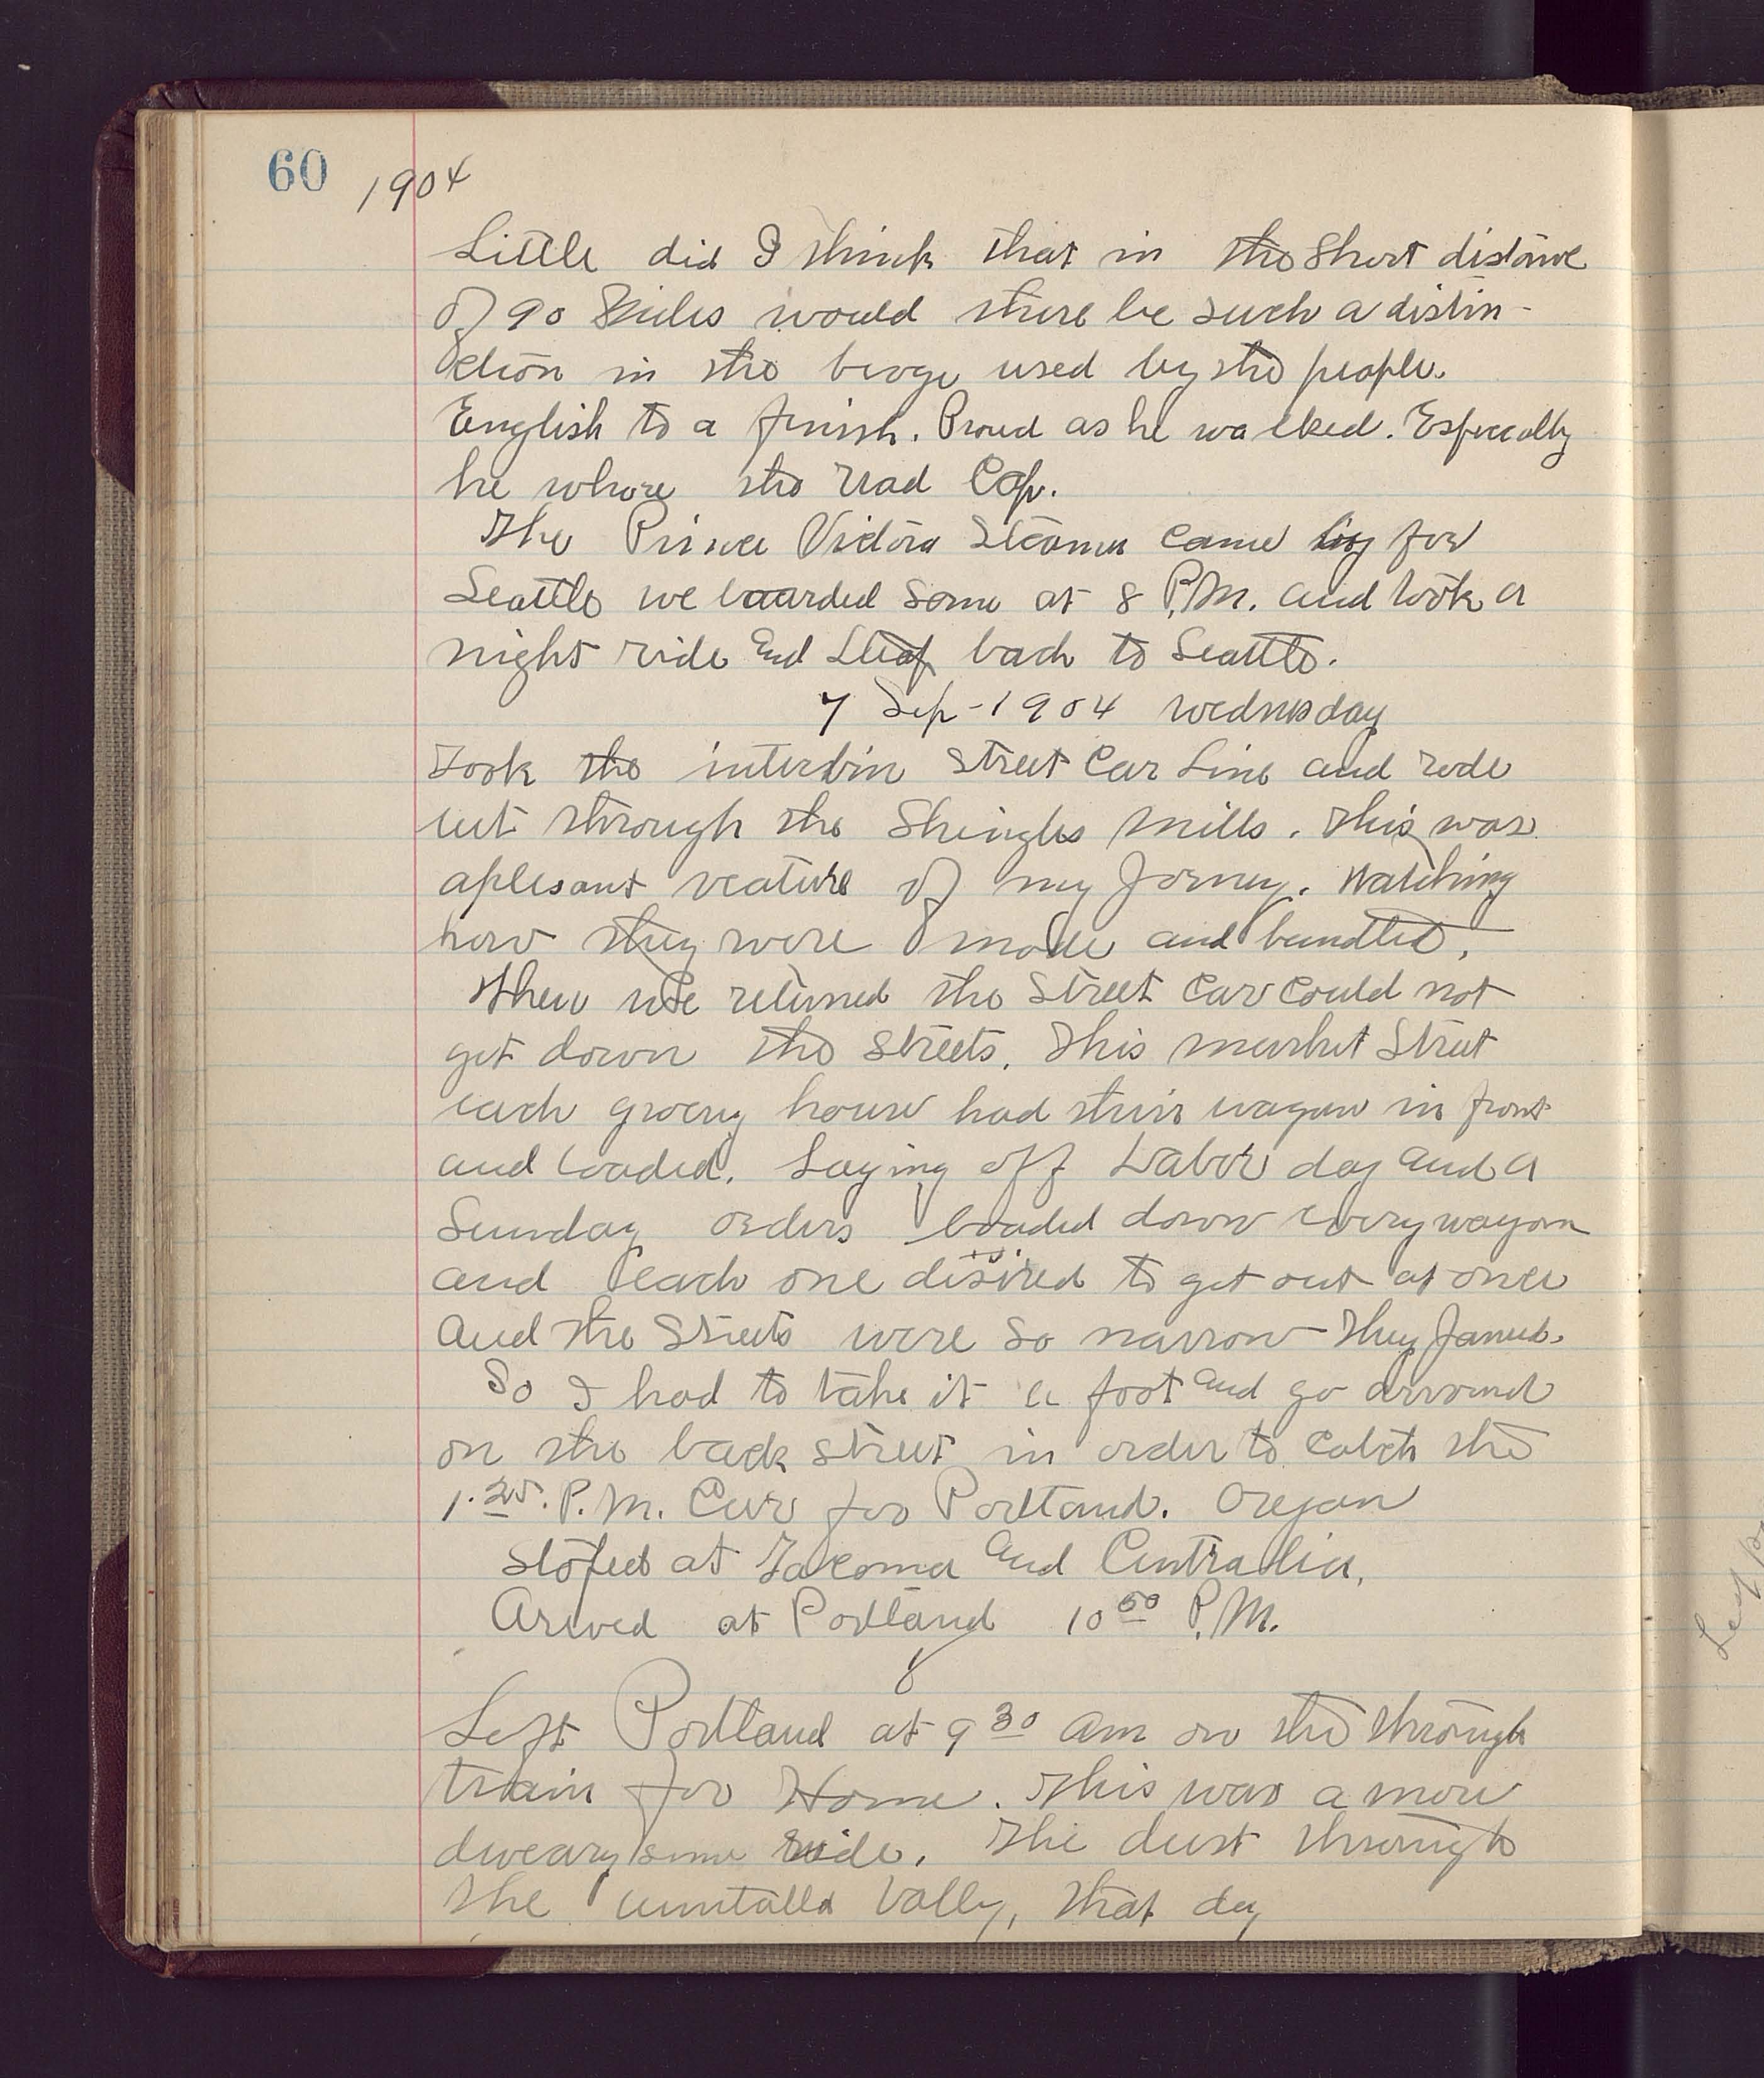 60 1904
Little did I think that in the Short distance
of 90 Miles would there be such a distin-
ction in the broge used by the people.
English to a finish. Proud as he walked. Especially
he whore the read Cap.
The Prince Victora Steamer came by for
Seattle we boarded same at 8 P.M. and took a
night ride and Sleap back to Seattle.
7 Sep-1904 wednesday
Took the interbin Street Car Line and rode
out through the Shingles Mills. This was
aplesant veature of my Jorney. Watching
how they were made and bundled.
When we returned the Street Car could not
get down the streets. This market Street
each grocery house had their wagon in front
and loaded. Laying off Labor day and a
Sunday orders loaded down every wagon
and each one desired to get out at once
and the Streets were so narrow they Jamed.
So I had to take it a foot and go arround
on the back street in order to catch the
1.25. P.M. Car for Portland. Oregon
stoped at Tacoma and Centralia.
Arived at Portland 10 50 P.M.
8
Left Portland at 9 30 am on the through
train for Home. This was a more
dwearysome ride. The dust through
the umtalla Vally, that day